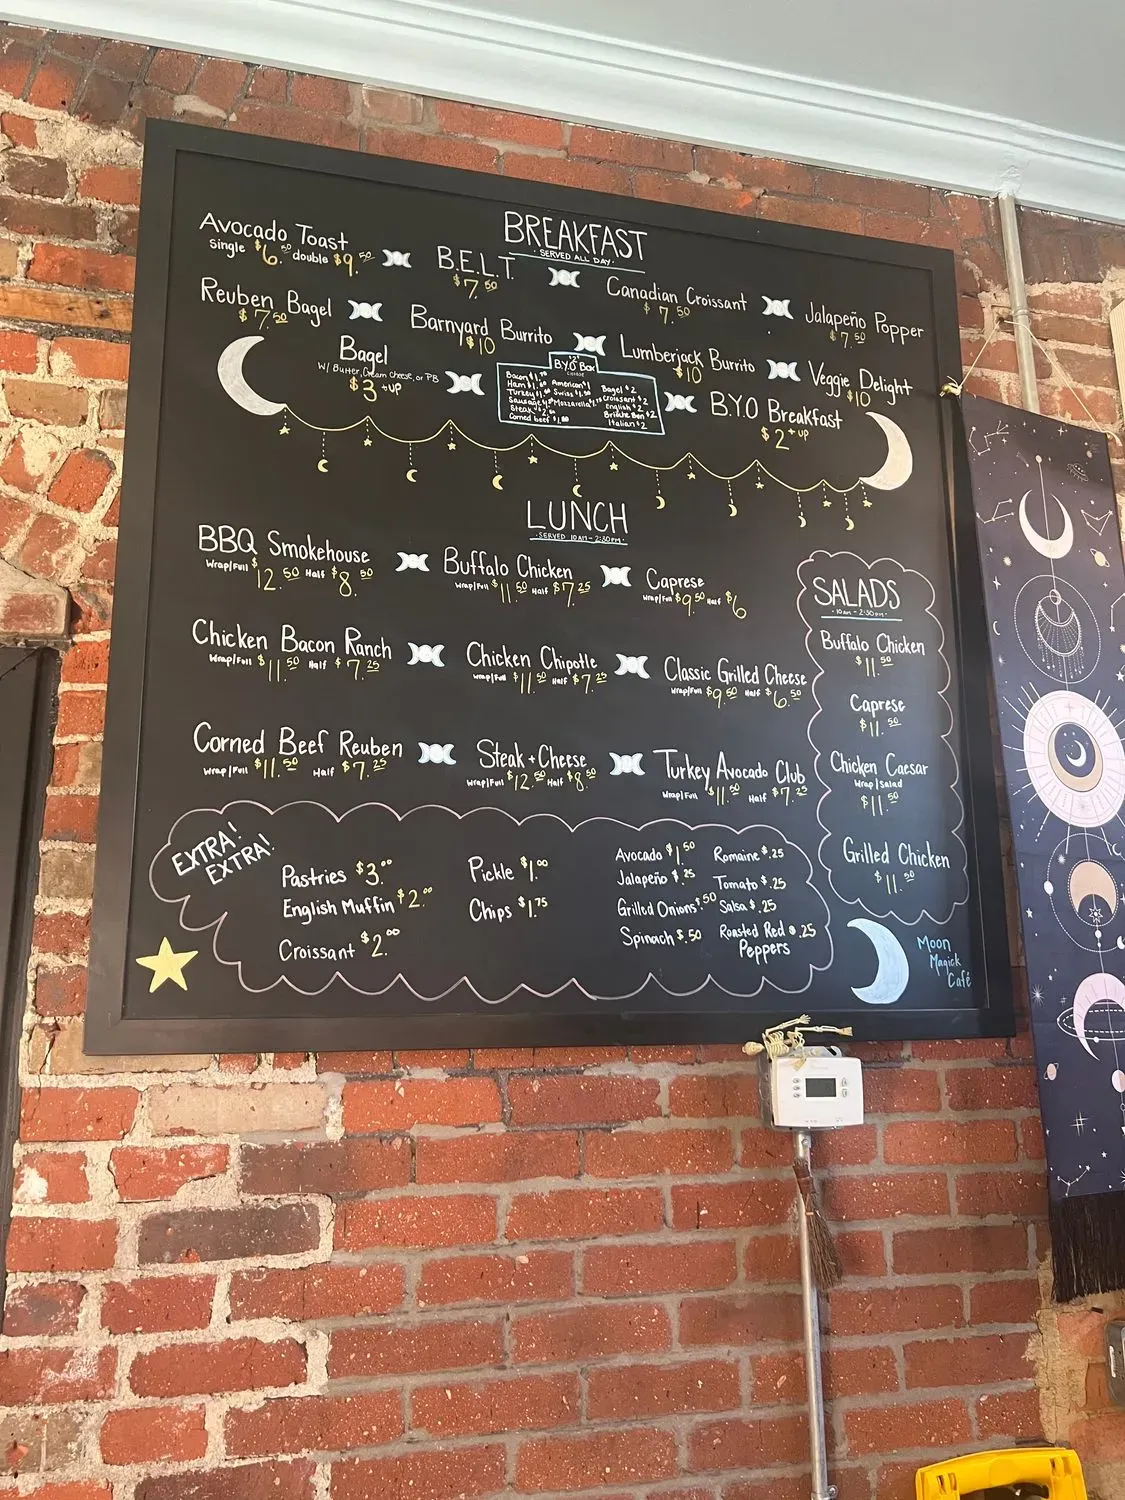 BREAKFAST
· SERVED ALL DAY ·
Avocado Toast
Single $6.50 double $9.50
B.E.L.T.
$7.50
Canadian Croissant
$7.50
Jalapeño Popper
$7.50
Reuben Bagel
$7.50
Barnyard Burrito
$10
Lumberjack Burrito
$10
Veggie Delight
$10
Bagel
W/ Butter, Cream Cheese, or PB
$3 + UP
B.Y.O Box
CHEESE
American $1
Swiss
Mozzarella
Bacon
Ham
Turkey
Sausage
Steak
Corned beef
Bagel $2
Croissant $2
English $2
Brioche Bun $2
Italian $2
B.Y.O Breakfast
$2 + UP
LUNCH
· SERVED 10AM - 2:30PM ·
BBQ Smokehouse
Wrap/Full $12.50 Half $8.50
Buffalo Chicken
Wrap/Full $11.50 Half $7.25
Caprese
Wrap/Full $9.50 Half $6
Chicken Bacon Ranch
Wrap/Full $11.50 Half $7.25
Chicken Chipotle
Wrap/Full $11.50 Half $7.25
Classic Grilled Cheese
Wrap/Full $9.50 Half $6.50
Corned Beef Reuben
Wrap/Full $11.50 Half $7.25
Steak + Cheese
Wrap/Full $12.50 Half $8.50
Turkey Avocado Club
Wrap/Full $11.50 Half $7.25
SALADS
· 10am - 2:30pm ·
Buffalo Chicken
$11.50
Caprese
$11.50
Chicken Caesar
Wrap/Salad
$11.50
Grilled Chicken
$11.50
EXTRA!
EXTRA!
Pastries $3.00
English Muffin $2.00
Croissant $2.00
Pickle $1.00
Chips $1.75
Avocado $1.50
Jalapeño $.25
Grilled Onions $.50
Spinach $.50
Romaine $.25
Tomato $.25
Salsa $.25
Roasted Red $.25
Peppers
Moon
Magick
Café